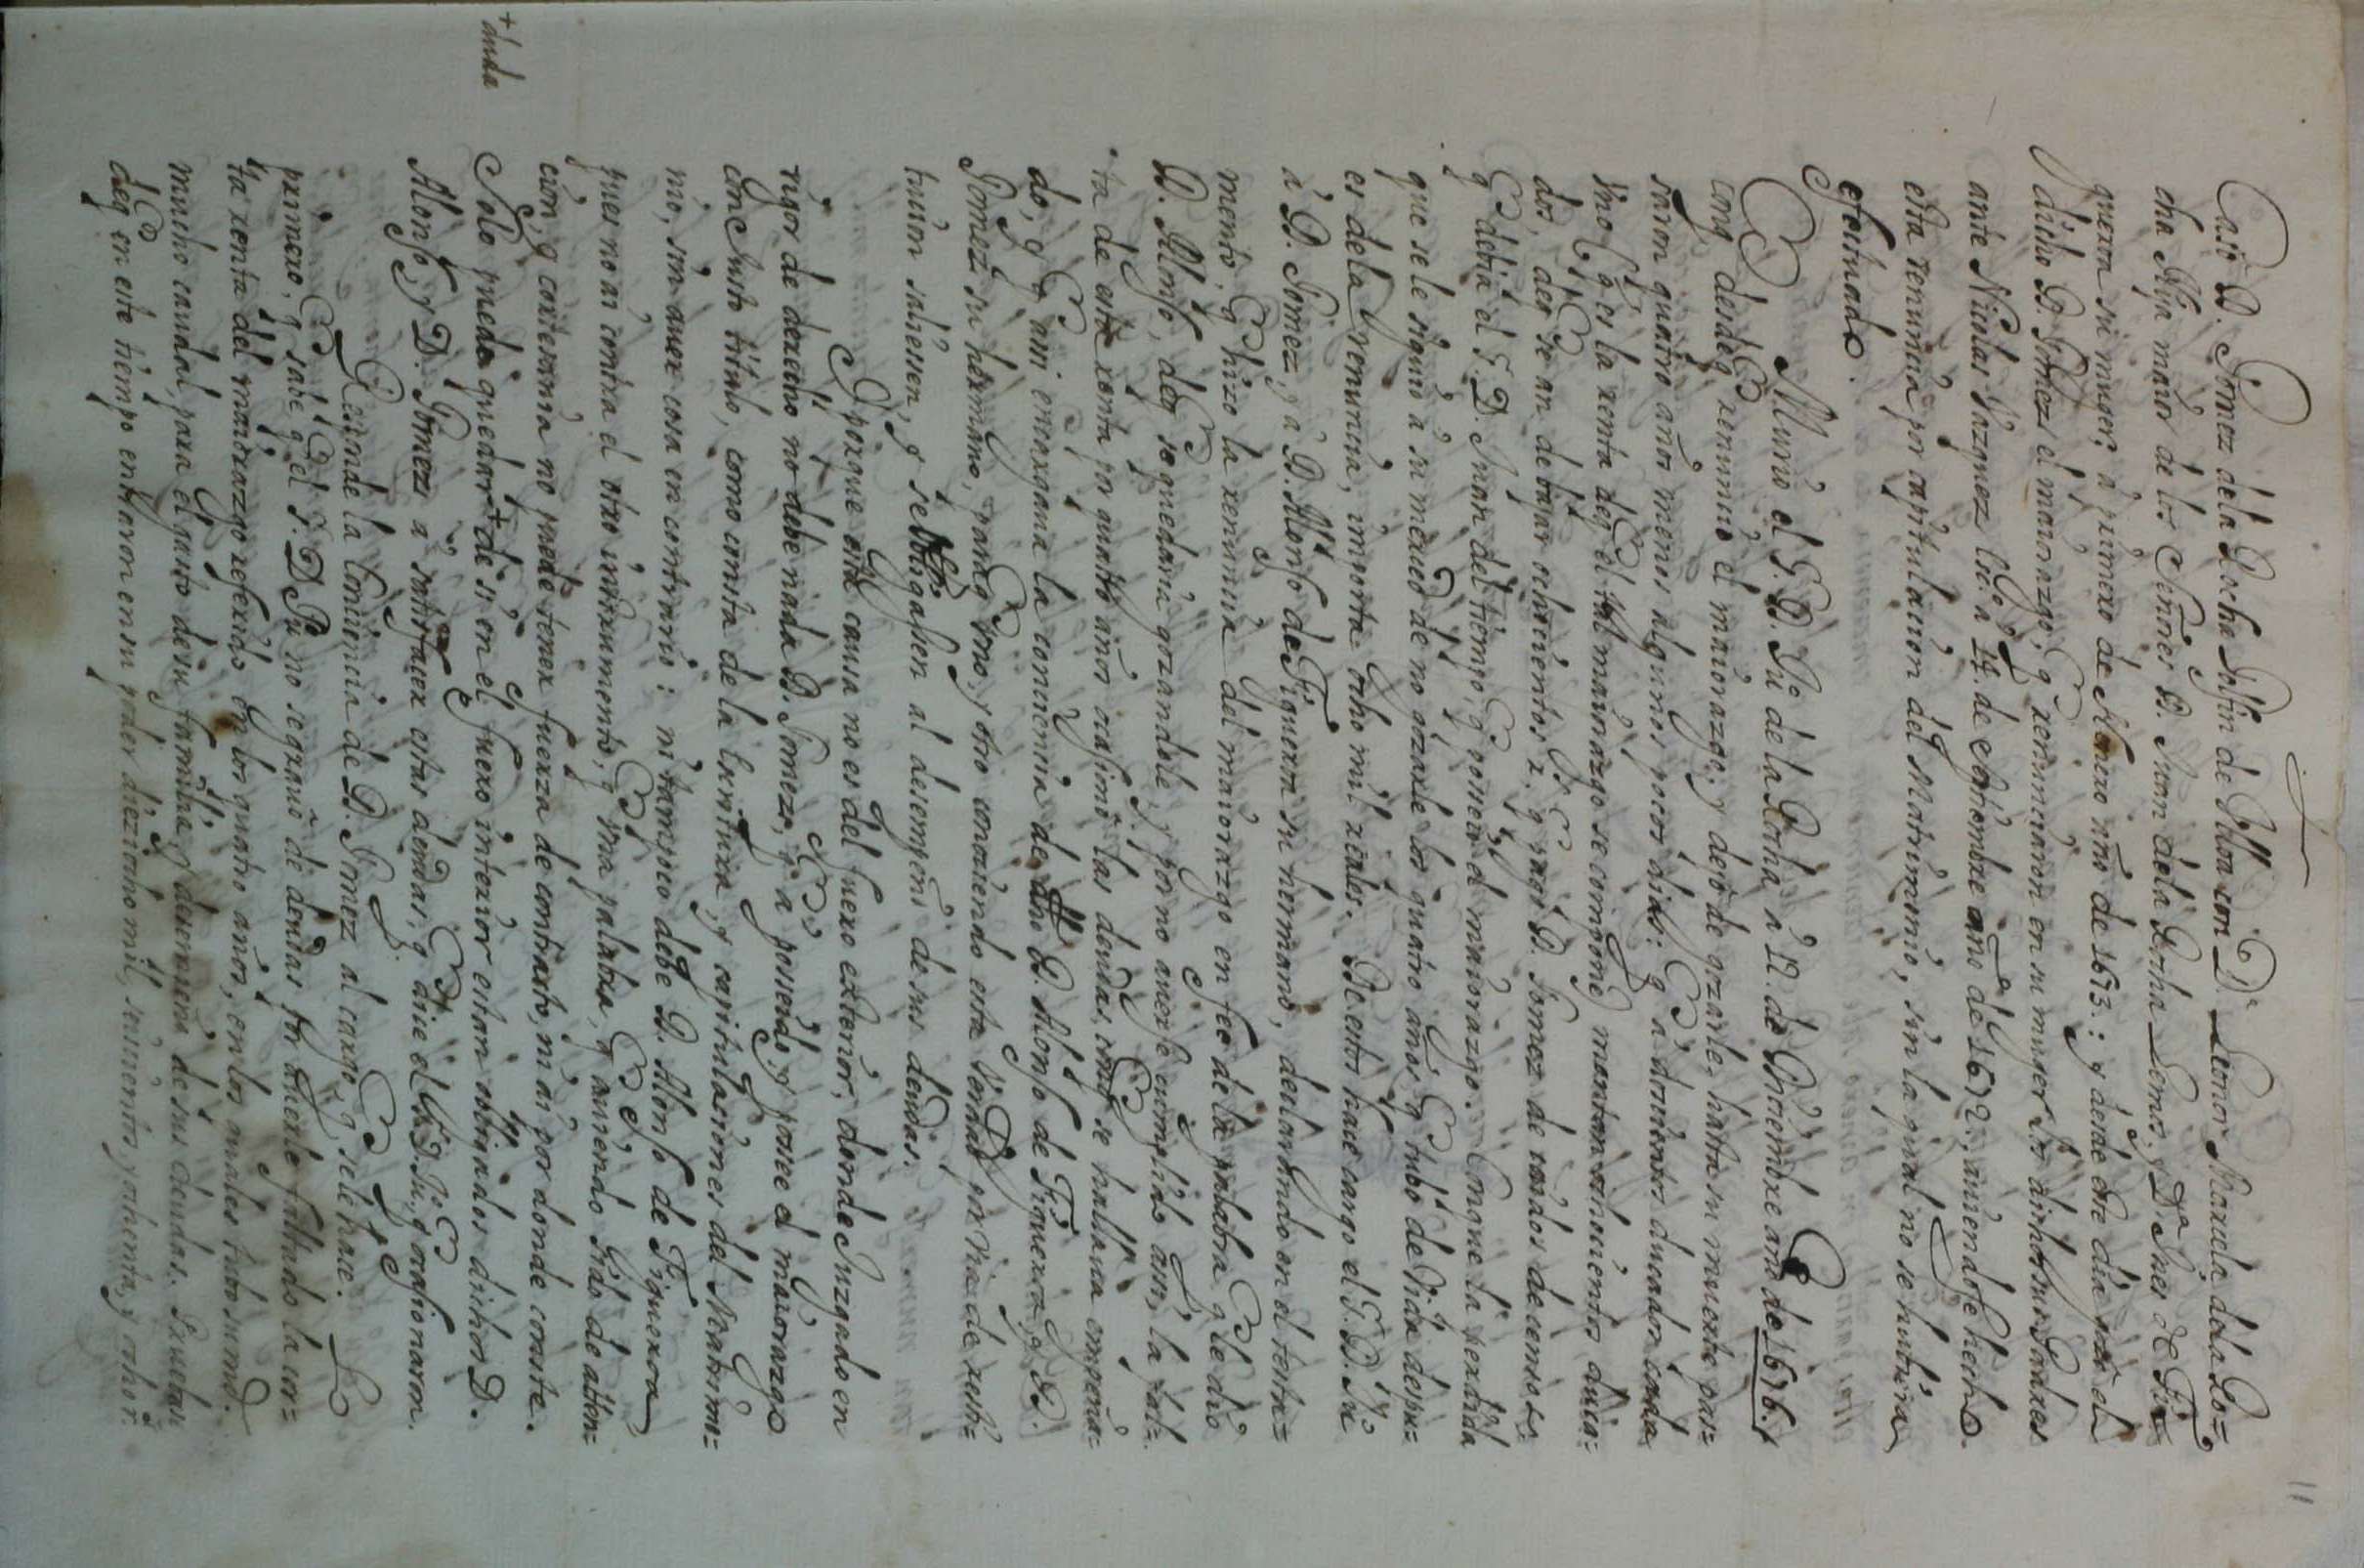 11
Casó D. Gomez de la Rocha Golfin de Ulloa con Dª Leonor Maxuela de la Ro=
cha hija maior de los Señores D. Juan de la Rocha Lemus, y Dª Ines de Fi=
gueroa su muger; à primero de Março año de 1673.: y desde este dia el
dicho D. Gomez el maiorazgo, q̃ renunciaron en su muger los dichos sus Padres
ante Nicolas Vazquez Ess.º a 14. de Septiembre año de 1672., auiendose hecho
esta renuncia por capitulacion del Matrimonio, sin la qual no se hubiera
efectuado.
Murio el S. D. Juº de la Rocha à 12. de Diciembre año de 1676.
con q̃ desde q̃ renunciò el maiorazgo, y dejó de gozarle, hasta su muerte pas=
saron quatro años menos algunos pocos dias: q̃ à docientos ducados cada
vno (q̃ es la renta de q̃ el tal maiorazgo se compone) montan ochocientos duca=
dos; de se an de bajar ochocientos r.ˢ q̃ pagó D. Gomez de caidos de censos
q̃ debia el S. D. Juan del tiempo, q̃ poseió el maiorazgo. Conque la perdida
que se le siguió à su merced de no gozarle los quatro años, q̃ tubo de vida despu=
es de la renuncia, importa ocho mil reales. De estos hace cargo el S. D. Ju
à D. Gomez, y à D. Alonso de Figueroa su hermano, declarando en el testa=
mento, q̃ hizo la renuncia del maiorazgo en fee de la palabra q̃ le dio
D. Alonso, de q̃ se quedaria gozandole, y por no auerse cumplido assi, la fal=
ta de esta renta por quatro años ocasionó las deudas, con q̃ se hallaua empeña=
do; y q̃ assi encargaua la conciencia de dho D. Alonso de Figueroa, y D.
Gomez su hermano, para q̃ vno, y otro conociendo esta verdad por via de resti=
tucion saliessen, y se obligassen al desempeño de sus deudas.
Y porque esta causa no es del fuero exterior, donde Juzgado en
rigor de derecho no debe nada D. Gomez, q̃ a posseido, y posee el maiorazgo
con Justo titulo, como consta de la Escritura, y capitulaciones del Matrimo=
nio, sin auer cosa en contrario: ni tampoco debe D. Alonso de Figueroa
pues no ai contra el otro instrumento, q̃ vna palabra, q̃ auiendo sido de aten=
cion, q̃ cortesania no puede tener fuerza de contrato, ni ai por donde conste.
Solo puede quedar + de si en el fuero interior estan obligados dichos D.
+ duda
Alonso, y D. Gomez à satisfacer estas deudas, q̃ dice el S. D. Ju. q̃ ocasionaron.
Responde la conciencia de D. Gomez al cargo, q̃ se le hace. Lo
primero, q̃ sabe q̃ el S. D. Ju no se grauó de deudas por auerle faltado la cor=
ta renta del maiorazgo referido en los quatro años, en los quales tubo sumo
mucho caudal para el gasto de su familia, y desempeño de sus deudas. Pruebase
de q̃ en este tiempo entraron en su poder diez i ocho mil, seiscientos, y ochenta, y ocho r.ˢ